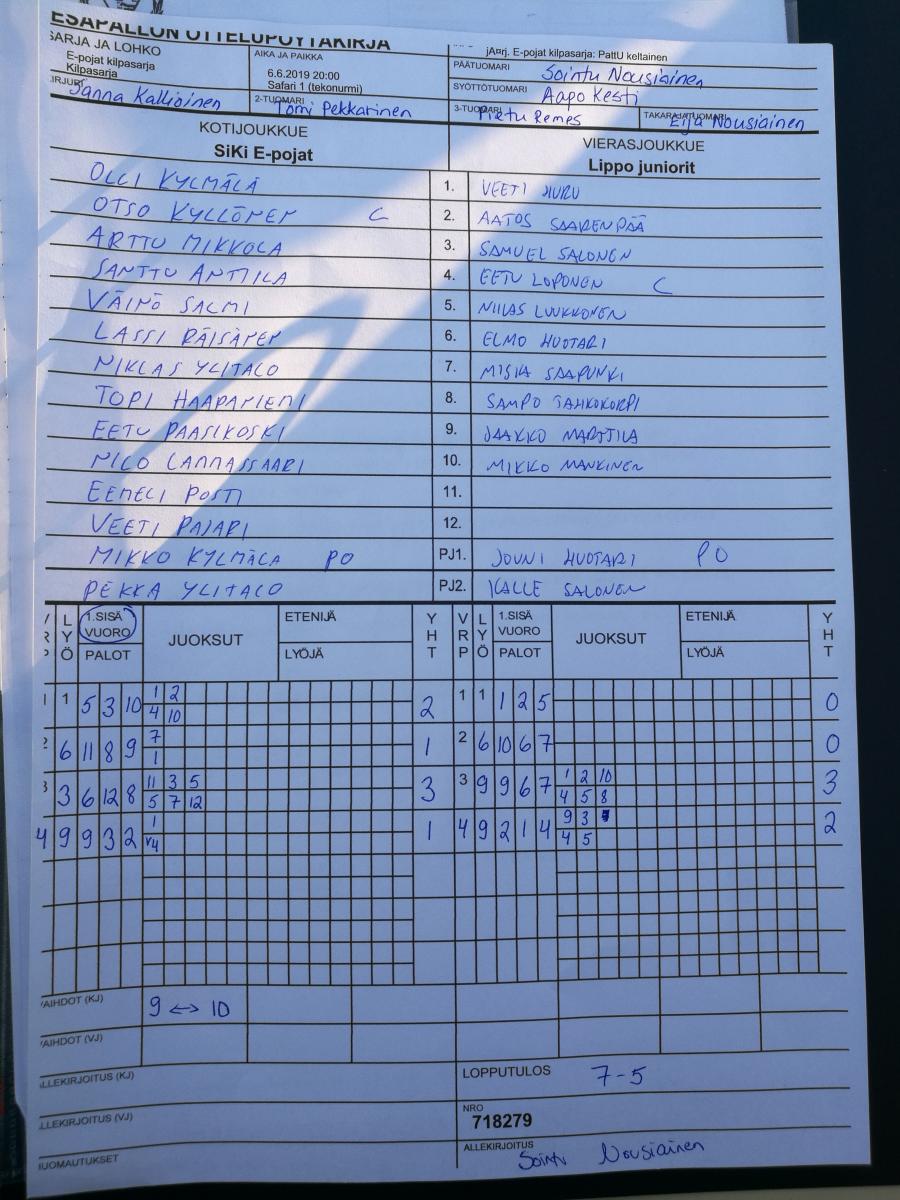 ESÄPALLON OTTELUPÖYTÄKIRJA
SARJA JA LOHKO
E-pojat kilpasarja
Kilpasarja
AIKA JA PAIKKA
6.6.2019 20:00
Safari 1 (tekonurmi)
jAarj. E-pojat kilpasarja: PattU keltainen
PÄÄTUOMARI Sointu Nousiainen
SYÖTTÖTUOMARI Aapo Kesti
KIRJURI Janna Kallioinen
2-TUOMARI Tomi Pekkarinen
3-TUOMARI Pietu Remes
TAKARAJATUOMARI Eija Nousiainen
KOTIJOUKKUE VIERASJOUKKUE
SiKi E-pojat Lippo juniorit
OLLI KYLMÄLÄ 1. VEETI HURU
OTSO KYLLÖNEN C 2. AATOS SAARENPÄÄ
ARTTU MIKKOLA 3. SAMUEL SALONEN
SANTTU ANTTILA 4. EETU LOPONEN C
VÄINÖ SALMI 5. NIILAS LUUKKONEN
LASSI RÄISÄNEN 6. ELMO HUOTARI
NIKLAS YLITALO 7. MISKA SAAPUNKI
TOPI HAAPANIEMI 8. SAMPO TAHKOKORPI
EETU PAASIKOSKI 9. JAAKKO MARTTILA
NILO LANNASSAARI 10. MIKKO MANKINEN
EEMELI POSTI 11.
VEETI PAJARI 12.
MIKKO KYLMÄLÄ PO PJ1. JOUNI HUOTARI PO
PEKKA YLITALO PJ2. KALLE SALONEN
VRP LYÖ 1.SISÄ VUORO PALOT JUOKSUT ETENIJÄ LYÖJÄ YHT VRP LYÖ 1.SISÄ VUORO PALOT JUOKSUT ETENIJÄ LYÖJÄ YHT
1 1 5 3 10 1 2 2 1 1 1 2 5 0
4 10
2 6 11 8 9 7 1 2 6 10 6 7 0
1
3 3 6 12 8 11 3 5 3 3 9 9 6 7 1 2 10 3
5 7 12 4 5 8
4 9 9 3 2 1 1 4 9 2 1 4 9 3 2
v4 4 5
VAIHDOT (KJ) 9 ↔ 10
VAIHDOT (VJ)
ALLEKIRJOITUS (KJ) LOPPUTULOS 7-5
ALLEKIRJOITUS (VJ) NRO
718279
HUOMAUTUKSET ALLEKIRJOITUS
Sointu Nousiainen